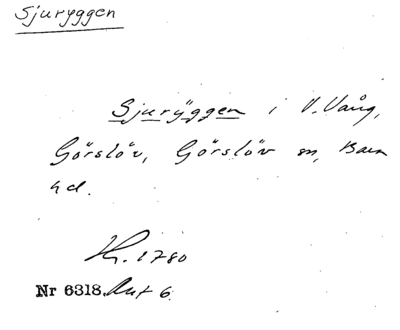 Sjuryggen
Sjurÿggen i V. Vång,
Görslöv, Görslöv sn, Bara
hd.
Kr. 1780
Nr 6318. Akt 6.